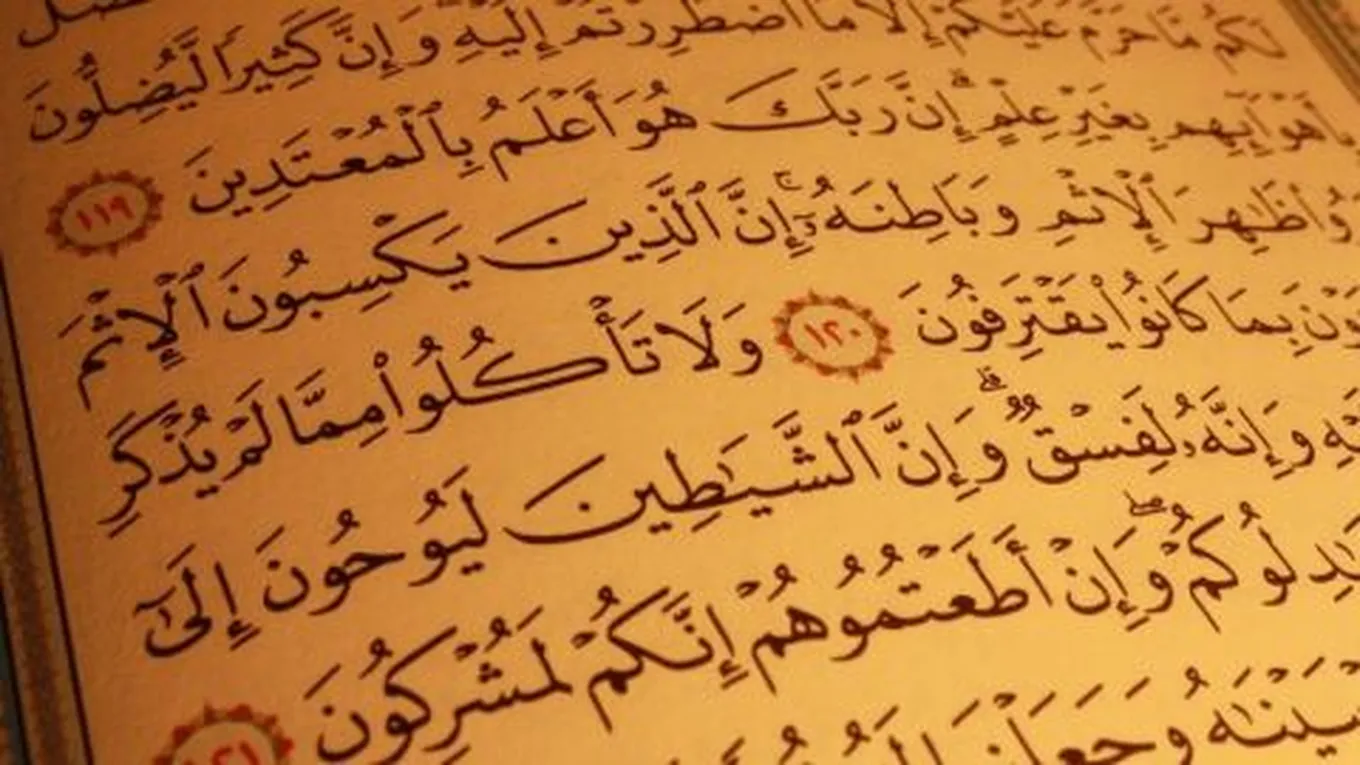 لَكُم مَّا حَرَّمَ عَلَيْكُمْ إِلَّا مَا ٱضْطُرِرْتُمْ إِلَيْهِ وَإِنَّ كَثِيرًا لَّيُضِلُّونَ
بِأَهْوَآئِهِم بِغَيْرِ عِلْمٍ إِنَّ رَبَّكَ هُوَ أَعْلَمُ بِٱلْمُعْتَدِينَ ١١٩
ظَٰهِرَ ٱلْإِثْمِ وَبَاطِنَهُۥٓ إِنَّ ٱلَّذِينَ يَكْسِبُونَ ٱلْإِثْمَ
بِمَا كَانُوا۟ يَقْتَرِفُونَ ١٢٠ وَلَا تَأْكُلُوا۟ مِمَّا لَمْ يُذْكَرِ
وَإِنَّهُۥ لَفِسْقٌ وَإِنَّ ٱلشَّيَٰطِينَ لَيُوحُونَ إِلَىٰٓ
وَإِنْ أَطَعْتُمُوهُمْ إِنَّكُمْ لَمُشْرِكُونَ ١٢١